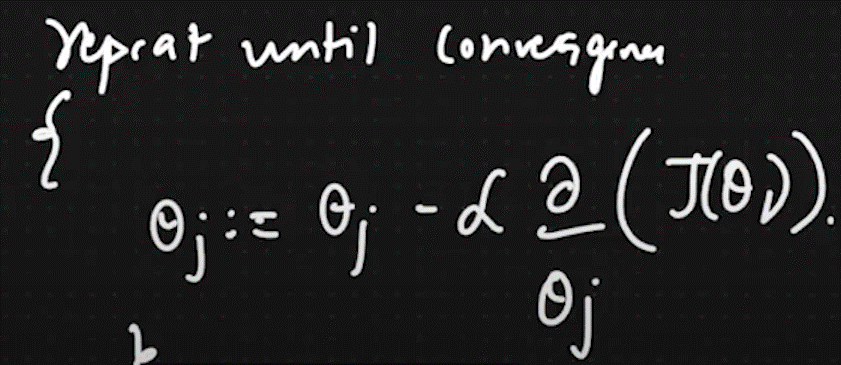 repeat until convergence
{
θj := θj - α ∂/θj (J(θj)).
}